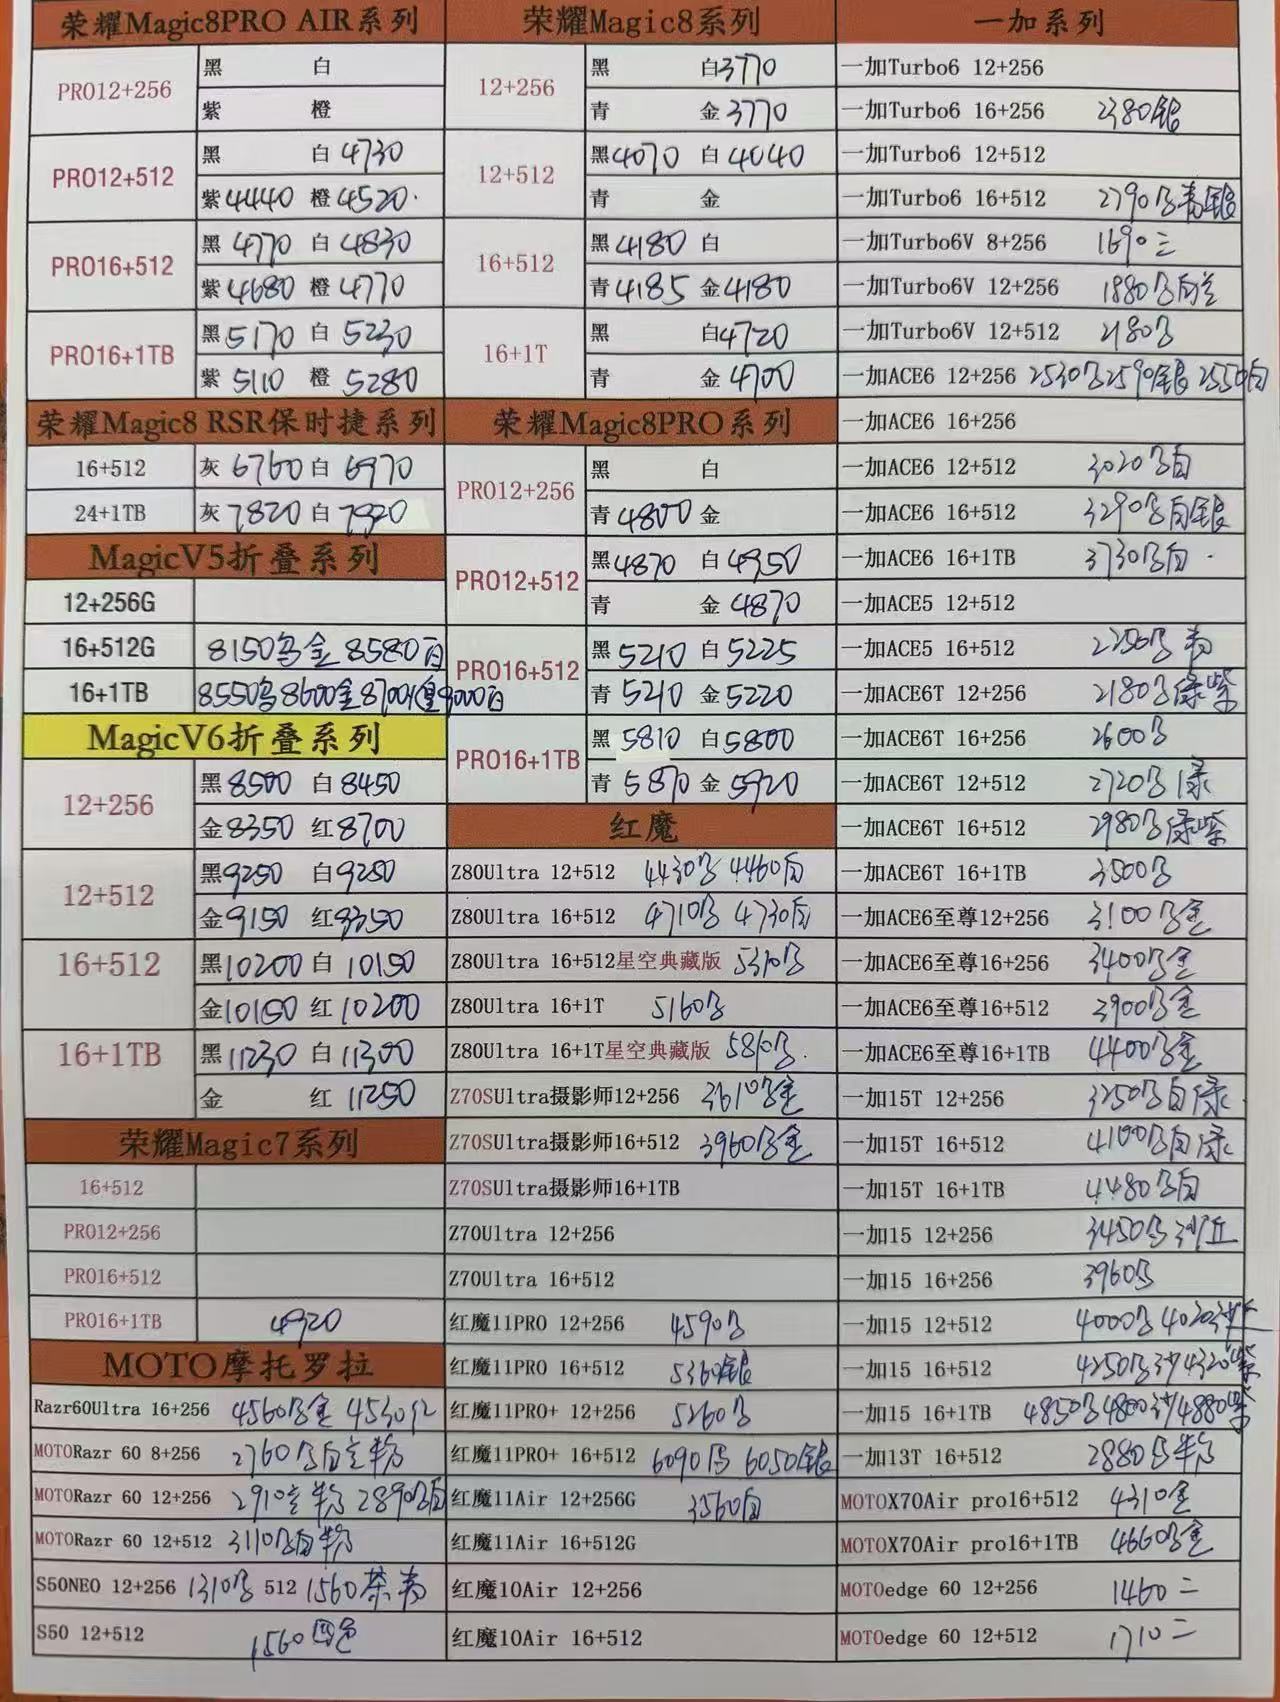 荣耀Magic8PRO AIR系列
PRO12+256 黑 白
紫 橙
PRO12+512 黑 白4730
紫4440 橙4520
PRO16+512 黑4770 白4830
紫4680 橙4770
PRO16+1TB 黑5170 白5230
紫5110 橙5280
荣耀Magic8 RSR保时捷系列
16+512 灰6760 白6970
24+1TB 灰7820 白7920
MagicV5折叠系列
12+256G
16+512G 8150乌金 8580白
16+1TB 8550乌8600金8700 9000白
MagicV6折叠系列
12+256 黑8500 白8450
金8350 红8700
12+512 黑9250 白9250
金9150 红9350
16+512 黑10200 白10150
金10150 红10200
16+1TB 黑11230 白11300
金 红11250
荣耀Magic7系列
16+512
PRO12+256
PRO16+512
PRO16+1TB 4920
MOTO摩托罗拉
Razr60Ultra 16+256 4560乌金 4530
MOTORazr 60 8+256 2760乌白
MOTORazr 60 12+256 2910 2890乌白
MOTORazr 60 12+512 3110乌白
S50NEO 12+256 1310乌 512 1560茶青
S50 12+512 1560四色
荣耀Magic8系列
12+256 黑 白3770
青 金3770
12+512 黑4070 白4040
青 金
16+512 黑4180 白
青4185 金4180
16+1T 黑 白4720
青 金4700
荣耀Magic8PRO系列
PRO12+256 黑 白
青4800 金
PRO12+512 黑4870 白4950
青 金4870
PRO16+512 黑5210 白5225
青5210 金5220
PRO16+1TB 黑5810 白5800
青5870 金5920
红魔
Z80Ultra 12+512 4430乌 4460白
Z80Ultra 16+512 4710乌 4730白
Z80Ultra 16+512星空典藏版 5310乌
Z80Ultra 16+1T 5160乌
Z80Ultra 16+1T星空典藏版 5810乌
Z70SUltra摄影师12+256 3610乌金
Z70SUltra摄影师16+512 3960乌金
Z70SUltra摄影师16+1TB
Z70Ultra 12+256
Z70Ultra 16+512
红魔11PRO 12+256 4590乌
红魔11PRO 16+512 5360银
红魔11PRO+ 12+256 5260乌
红魔11PRO+ 16+512 6090乌 6050银
红魔11Air 12+256G 3560白
红魔11Air 16+512G
红魔10Air 12+256
红魔10Air 16+512
一加系列
一加Turbo6 12+256
一加Turbo6 16+256 2380银
一加Turbo6 12+512
一加Turbo6 16+512 2790乌青银
一加Turbo6V 8+256 1690三
一加Turbo6V 12+256 1880乌白兰
一加Turbo6V 12+512 2180乌
一加ACE6 12+256 2530乌2590银 2550白
一加ACE6 16+256
一加ACE6 12+512 3020乌白
一加ACE6 16+512 3290乌白银
一加ACE6 16+1TB 3730乌白
一加ACE5 12+512
一加ACE5 16+512 乌青
一加ACE6T 12+256 2180乌绿紫
一加ACE6T 16+256 2600乌
一加ACE6T 12+512 2720乌绿
一加ACE6T 16+512 2980乌绿紫
一加ACE6T 16+1TB 3500乌
一加ACE6至尊12+256 3100乌金
一加ACE6至尊16+256 3400乌金
一加ACE6至尊16+512 3900乌金
一加ACE6至尊16+1TB 4400乌金
一加15T 12+256 3250乌白绿
一加15T 16+512 4100乌白绿
一加15T 16+1TB 4480乌白
一加15 12+256 3450乌沙丘
一加15 16+256 3960乌
一加15 12+512 4000乌 4020沙丘
一加15 16+512 4250乌沙4320紫
一加15 16+1TB 4850乌4800沙4880紫
一加13T 16+512 2880乌粉
MOTOX70Air pro16+512 4310金
MOTOX70Air pro16+1TB 4660乌金
MOTOedge 60 12+256 1460二
MOTOedge 60 12+512 1710二